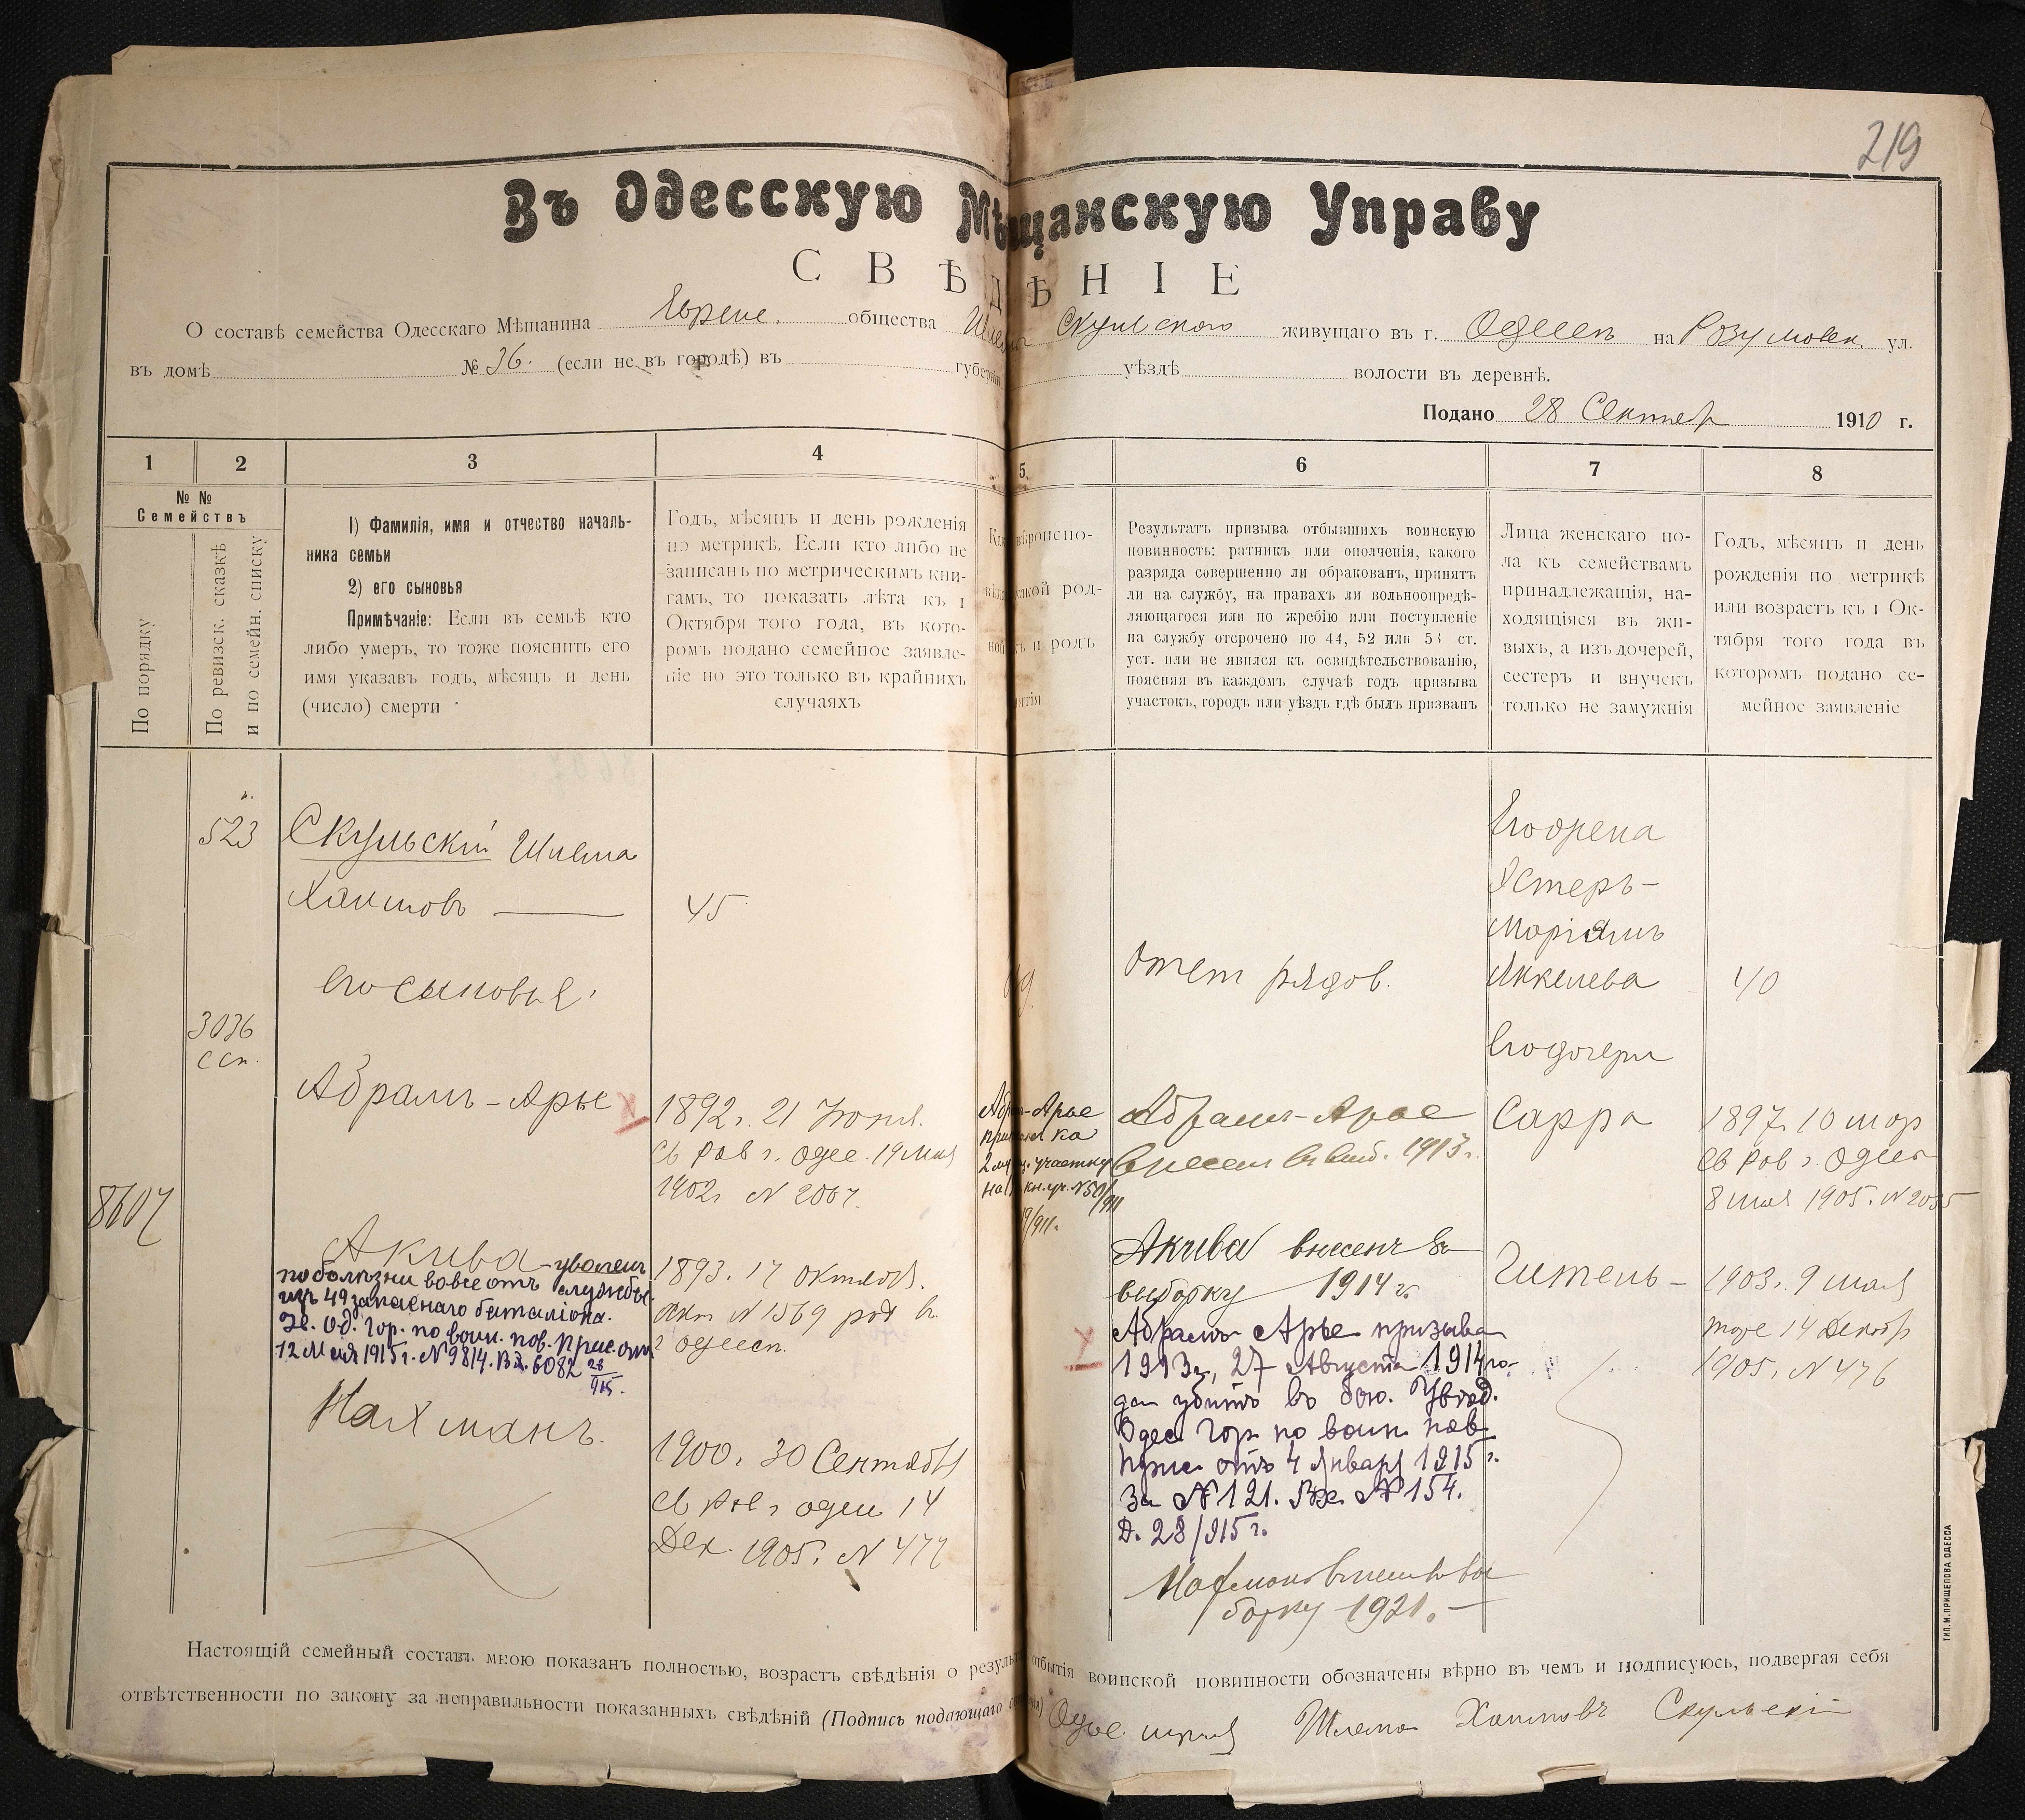 219
Въ Одесскую Мѣщанскую Управу
СВѢДѢНІЕ
О составѣ семейства Одесскаго Мѣщанина Еврейс. общества Скульского живущаго въ г. Одессѣ на Розумовск. ул.
въ домѣ № 36. (если не въ городѣ) въ губерніи уѣздѣ волости въ деревнѣ.
Подано 28 Сентяб 1910 г.
1 2 3 4 5 6 7 8
№ №
Семействъ
По порядку
По ревизск. сказкѣ
и по семейн. списку
1) Фамилія, имя и отчество началь-
ника семьи
2) его сыновья
Примѣчаніе: Если въ семьѣ кто
либо умеръ, то тоже пояснить его
имя указавъ годъ, мѣсяцъ и день
(число) смерти
Годъ, мѣсяцъ и день рожденія
по метрикѣ. Если кто либо не
записанъ по метрическимъ кни-
гамъ, то показать лѣта къ 1
Октября того года, въ кото-
ромъ подано семейное заявле-
ніе но это только въ крайнихъ
случаяхъ
вѣроиспо-
какой род-
и родъ
Результатъ призыва отбывшихъ воинскую
повинность: ратникъ или ополченія, какого
разряда совершенно ли обракованъ, принятъ
ли на службу, на правахъ ли вольноопредѣ-
ляющагося или по жребію или поступленіе
на службу отсрочено по 44, 52 или 53 ст.
уст. или не явился къ освидѣтельствованію,
поясняя въ каждомъ случаѣ годъ призыва
участокъ, городъ или уѣздъ гдѣ былъ призванъ
Лица женскаго по-
ла къ семействамъ
принадлежащія, на-
ходящіяся въ жи-
выхъ, а изъ дочерей,
сестеръ и внучекъ
только не замужнія
Годъ, мѣсяцъ и день
рожденія по метрикѣ
или возрастъ къ 1 Ок-
тября того года въ
которомъ подано се-
мейное заявленіе
523
Скульскій Шлема
Хаимовъ — 45
его сыновья:
3036
ссп.
Абрамъ-Арье
1892 г. 21 Июня.
св Рав г. Одес. 19 Мая
1902 г. № 2007.
8607
Акива - уволенъ
по болѣзни вовсе отъ службы
изъ 49 запаснаго баталіона.
Ув. Од. Гор. по воин. пов. Прис. отъ
12 Мая 1915 г. № 9814. Вх. 6082 28/915.
1893. 17 октября.
акт № 1569 род в
г Одессѣ.
Нахманъ.
1900. 30 Сентября
св Рав г Одес 14
Дек. 1905. № 477
Абрам-Арье
2 участку
отст рядов.
Абрамъ-Арье
внесен в выб. 1913 г.
Акива внесенъ въ
выборку 1914 г.
Абрамъ Арье призыва
1913 г., 27 Августа 1914 го-
да убитъ въ бою. Увѣд.
Одес. Гор. по воин. пов.
Прис. отъ 4 Января 1915 г.
за № 121. Вх. № 154.
Д. 28/915 г.
Нахманъ внесенъ въ вы
борку 1921. —
Его жена
Эстеръ-
Маріамъ
Янкелева 40
его дочери
Сарра
1897. 10 мар
св Рав г. Одес
8 мая 1905. № 2035
Гитель -
1903. 9 мая
тоже 14 Декабр
1905. № 476
Настоящій семейный составъ мною показанъ полностью, возрастъ свѣдѣнія о результ отбытія воинской повинности обозначены вѣрно въ чемъ и подписуюсь, подвергая себя
отвѣтственности по закону за неправильности показанныхъ свѣдѣній (Подпись подающаго Одес. Шлема Хаимовъ Скульскій
ТИП. М. ПРИЩЕПОВА ОДЕССА